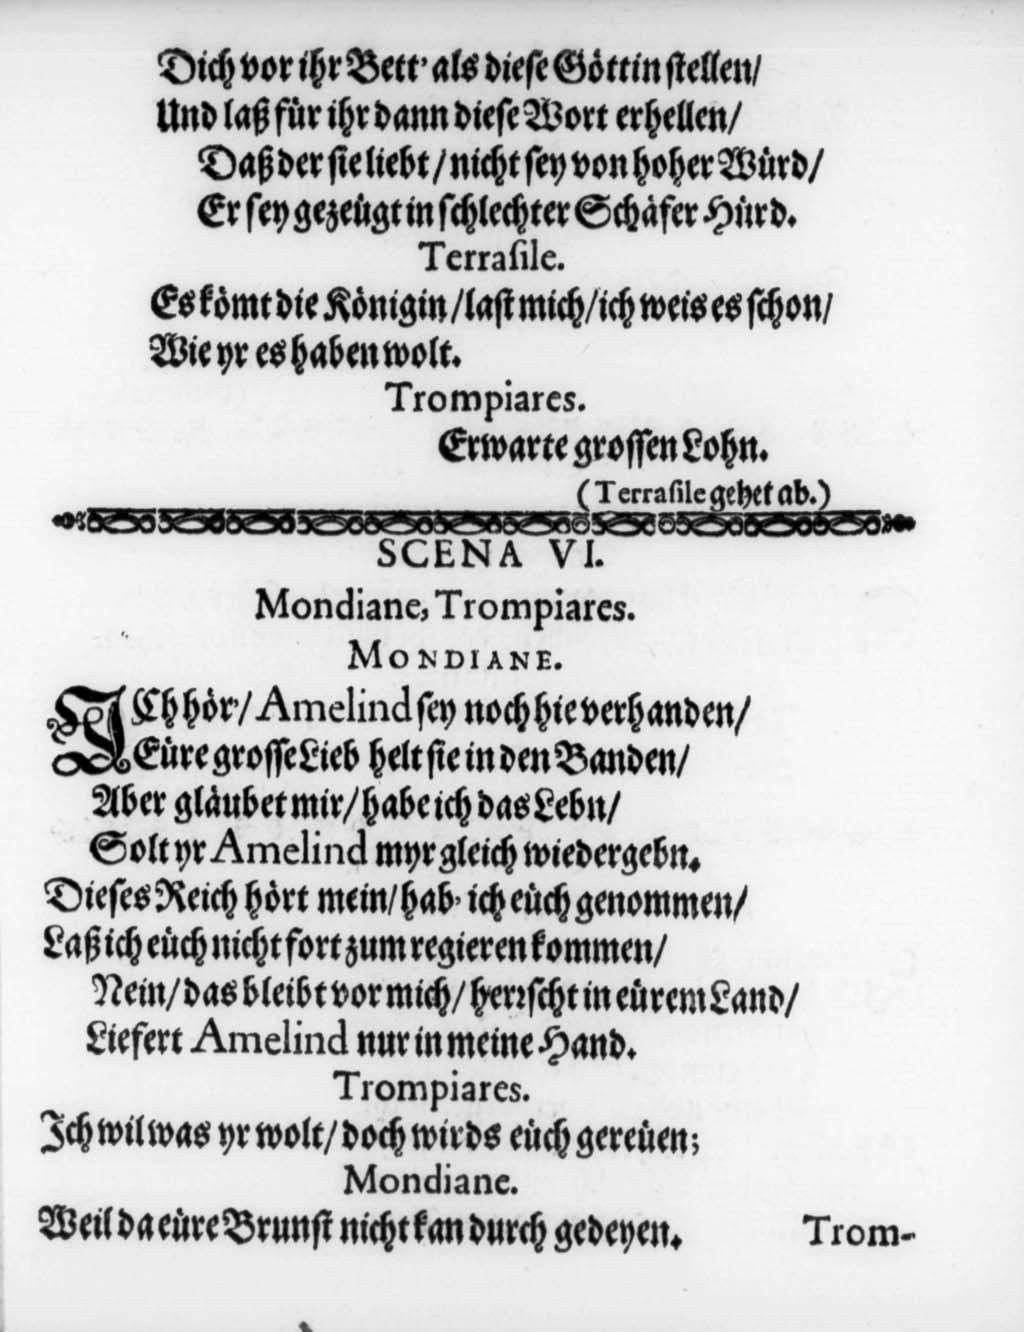 Dich vor ihr Bett' als diese Göttin stellen/
Und laß für ihr dann diese Wort erhellen/
Daß der sie liebt/ nicht sey von hoher Würd/
Er sey gezeügt in schlechter Schäfer Hürd.
Terrasile.
Es kömt die Königin/ last mich/ ich weis es schon/
Wie yr es haben wolt.
Trompiares.
Erwarte grossen Lohn.
(Terrasile gehet ab.)
SCENA VI.
Mondiane, Trompiares.
MONDIANE.
ICh hör'/ Amelind sey noch hie verhanden/
Eüre grosse Lieb helt sie in den Banden/
Aber gläubet mir/ habe ich das Lebn/
Solt yr Amelind myr gleich wiedergebn.
Dieses Reich hört mein/ hab' ich eüch genommen/
Laß ich eüch nicht fort zum regieren kommen/
Nein/ das bleibt vor mich/ herrscht in eürem Land/
Liefert Amelind nur in meine Hand.
Trompiares.
Ich wil was yr wolt/ doch wirds eüch gereüen;
Mondiane.
Weil da eüre Brunst nicht kan durch gedeyen.
Trom-